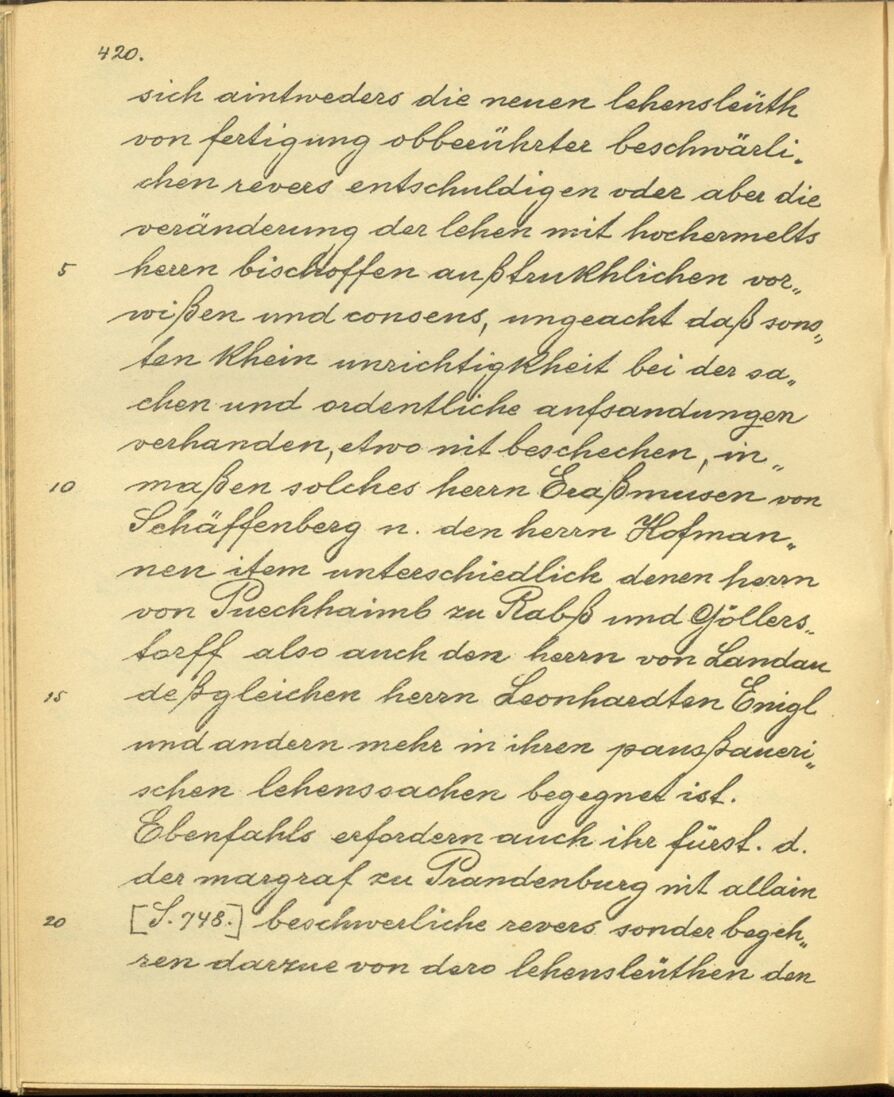 420.
sich aintweders die neuen lehensleüth
von fertigung obberührter beschwärli„
chen revers entschuldigen oder aber die
veränderung der lehen mit hochermelts
5 herrn bischoffen außtrukhlichen vor„
wißen und consens, ungeacht daß sons„
ten khein unrichtigkheit bei der sa„
chen und ordentliche aufsandungen
verhanden, etwo nit beschechen, in„
10 maßen solches herrn Eraßmusen von
Schäffenberg n. den herrn Hofman„
nen item unterschiedlich denen herrn
von Puechhaimb zu Rabß und Göllers„
torff also auch den herrn von Landau
15 deßgleichen herrn Leonhardten Enigl
und andern mehr in ihren paußaueri„
schen lehenssachen begegnet ist.
Ebenfahls erfordern auch ihr fürst. d.
der margraf zu Prandenburg nit allain
20 [S. 748.] beschwerliche revers sonder begeh„
ren darzue von dero lehensleüthen den